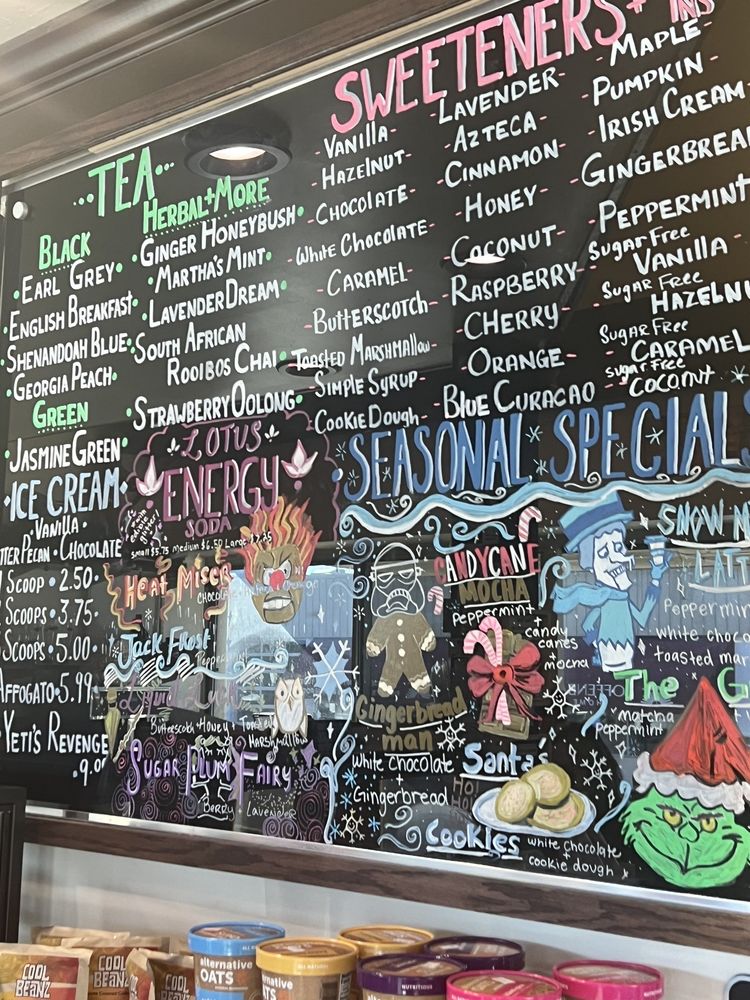 ...TEA...
BLACK
•EARL GREY•
•ENGLISH BREAKFAST•
•SHENANDOAH BLUE•
•GEORGIA PEACH•
GREEN
•JASMINE GREEN•
HERBAL+MORE
•GINGER HONEYBUSH•
•MARTHA'S MINT•
•LAVENDER DREAM•
•SOUTH AFRICAN
ROOIBOS CHAI•
•STRAWBERRY OOLONG•
•ICE CREAM•
VANILLA•
TTER PECAN•CHOCOLATE
SCOOP•2.50•
SCOOPS•3.75•
SCOOPS•5.00•
AFFOGATO•5.99
YETI'S REVENGE
SWEETENERS+
-VANILLA-
-HAZELNUT-
-CHOCOLATE-
-WHITE CHOCOLATE-
-CARAMEL-
-BUTTERSCOTCH-
-TOASTED MARSHMALLOW-
-SIMPLE SYRUP-
-COOKIE DOUGH-
-LAVENDER-
-AZTECA-
-CINNAMON-
-HONEY-
-COCONUT-
-RASPBERRY-
-CHERRY-
-ORANGE-
-BLUE CURACAO-
-MAPLE-
-PUMPKIN-
-IRISH CREAM-
-GINGERBREA
-PEPPERMINT
SUGAR FREE
VANILLA-
SUGAR FREE
HAZELNU
SUGAR FREE
CARAMEL
SUGAR FREE
COCONUT
LOTUS
ENERGY
SODA
small $5.75 medium $6.50 Large $7.25
HEAT MISER
JACK FROST
Butterscotch Honey + Toasted
MARSHMALLOW
SUGAR PLUM FAIRY
Berry
Lavender
SEASONAL SPECIALS
Gingerbread
man
white chocolate
+
Gingerbread
CANDYCANE
MOCHA
peppermint
+
candy
canes
+
mocha
Santa's
Cookies
white chocolate
+
cookie dough
SNOW M
LATT
Peppermin
white choco
toasted mar
The G
matcha
peppermint
COOL
BEANZ
COOL
BEANZ
COOL
BEANZ
alternative
OATS
alternative
OATS